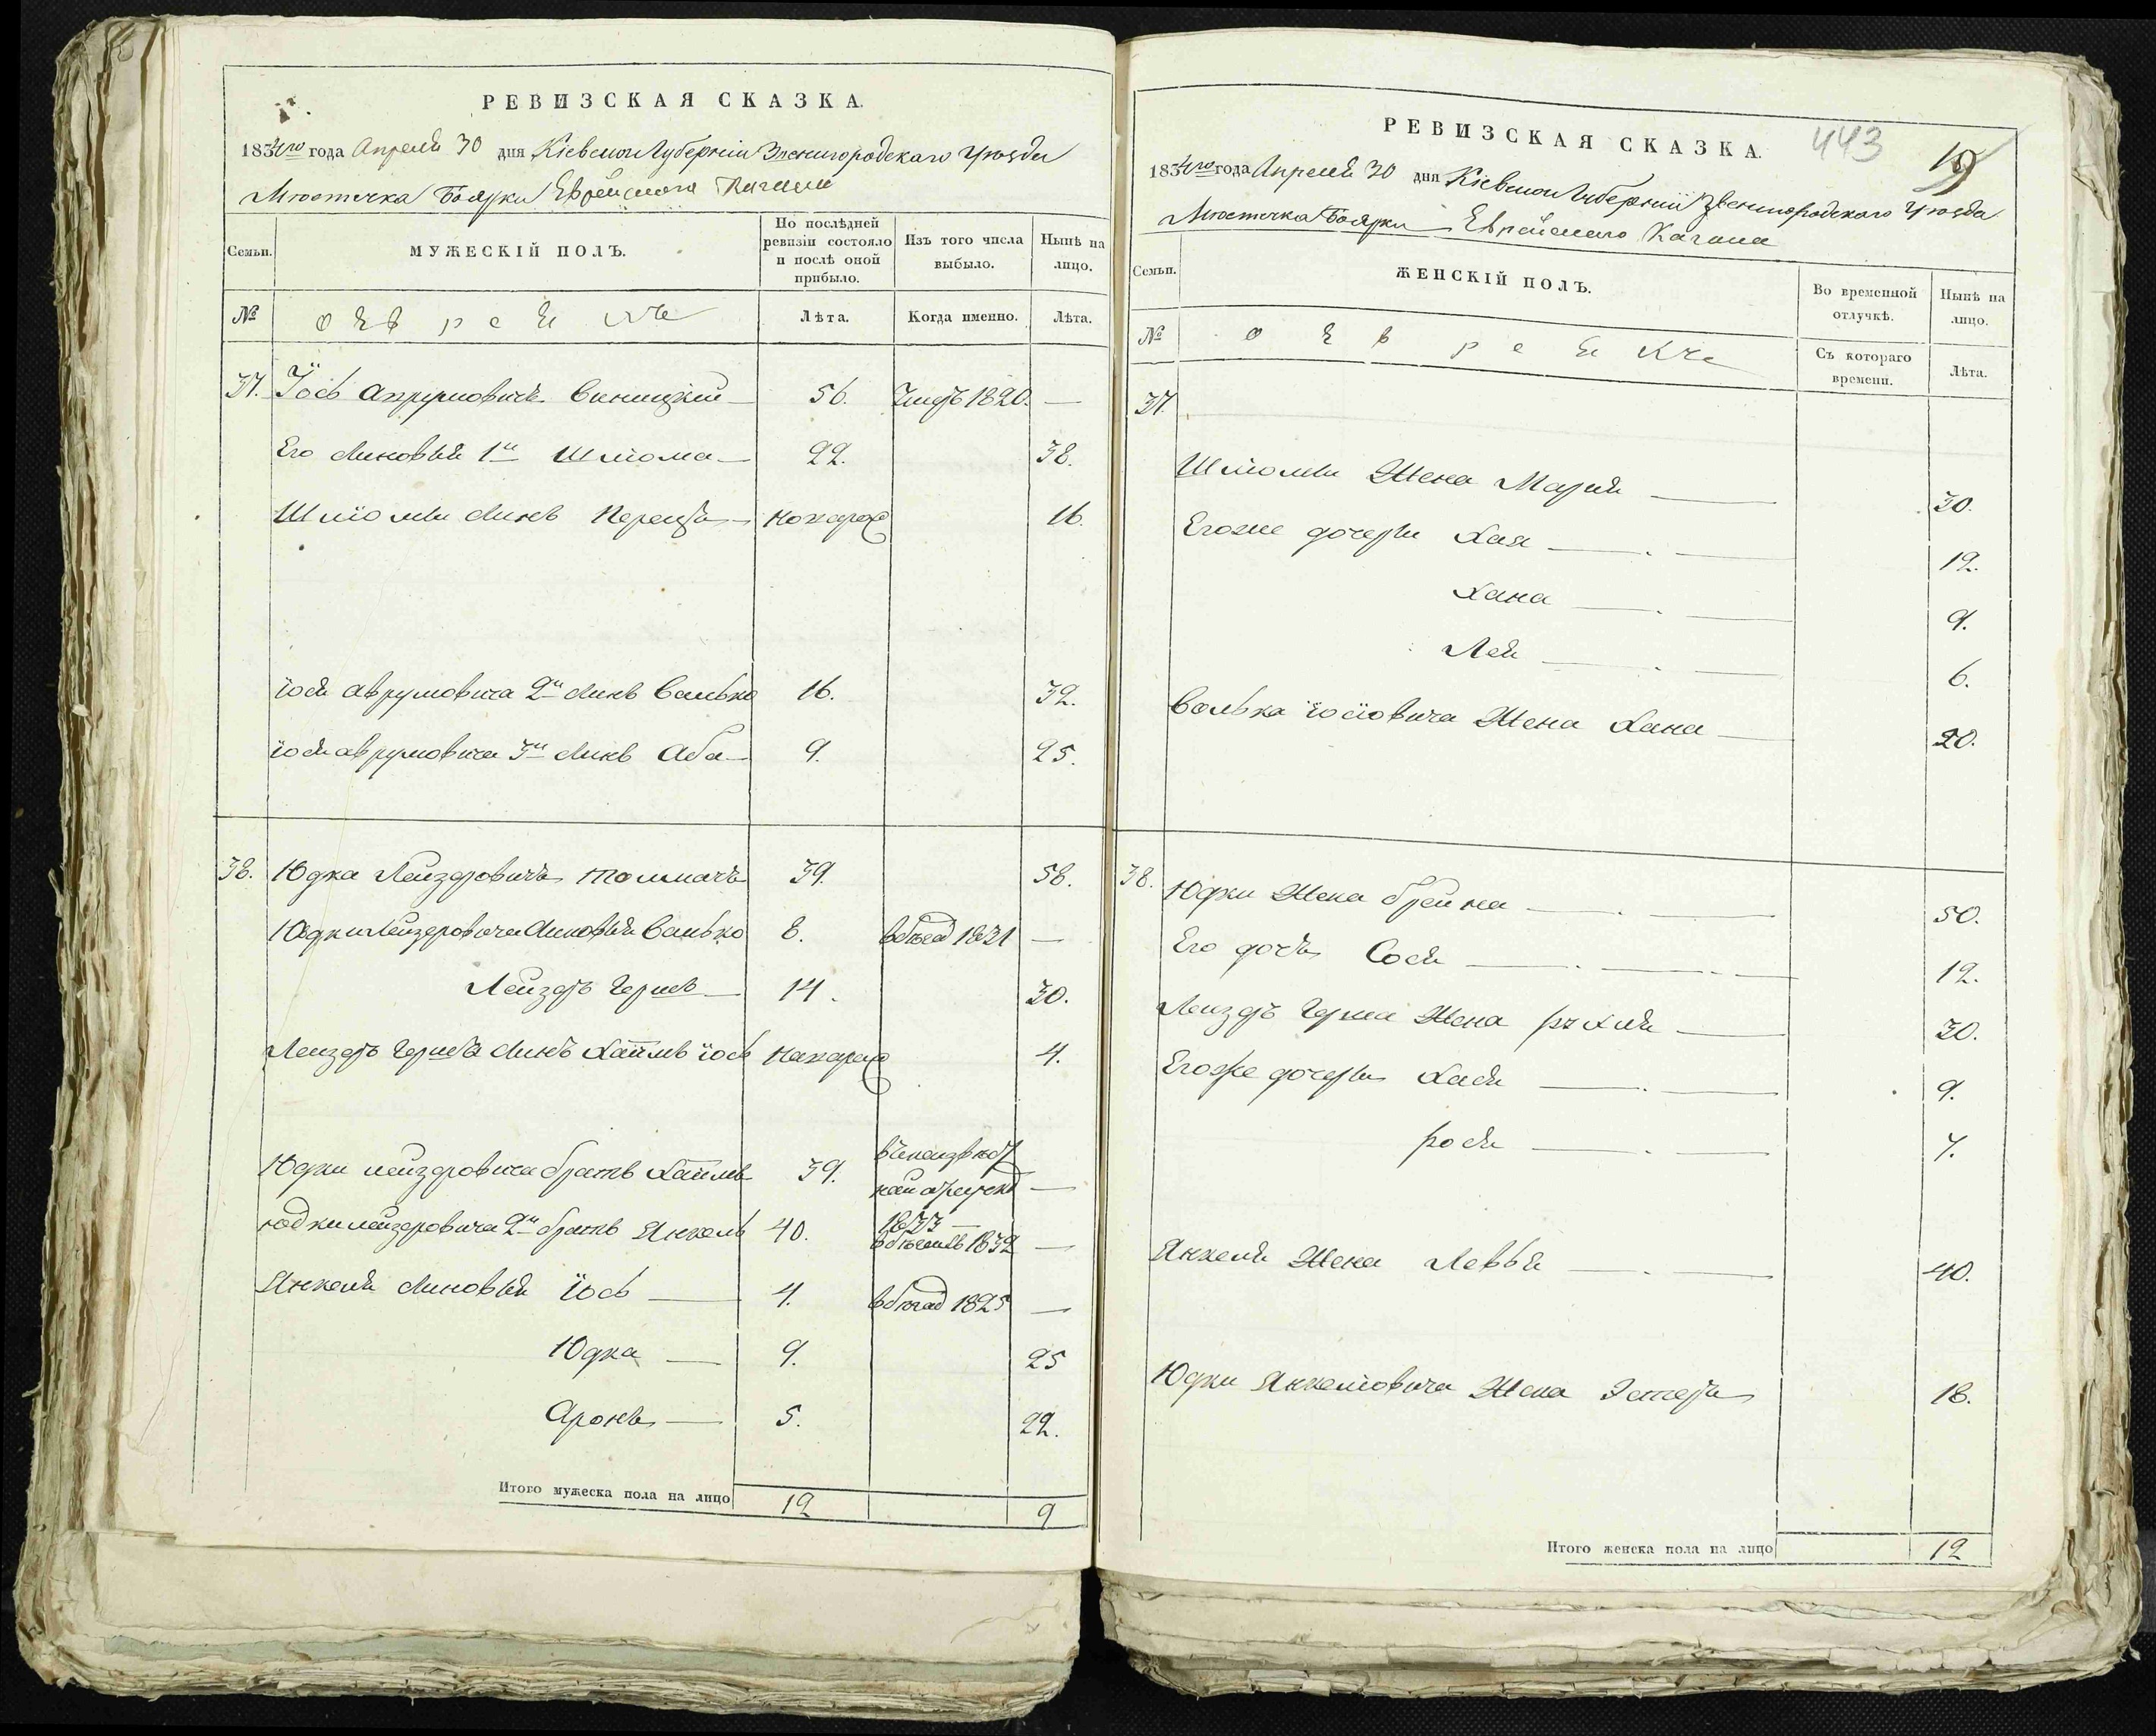 РЕВИЗСКАЯ СКАЗКА.
1834го года Апреля 30 дня Кіевской Губерніи Звенигородскаго Уѣзда
Мѣстечка Боярки Еврейскаго Кагала
Семьи.
МУЖЕСКІЙ ПОЛЪ.
По послѣдней ревизіи состояло и послѣ оной прибыло.
Изъ того числа выбыло.
Нынѣ на лицо.
№
о Еврей
Лѣта.
Когда именно.
Лѣта.
37. Іось Аврумовичъ Виницкій 56. 1820. —
Его Синовья 1й Шліома 22. 38.
Шліомы Синъ Перецъ 16.
Іося Аврумовича 2й Синъ Волько 16. 32.
Іося Аврумовича 3й Синъ Аба 9. 25.
38. Юдка Лейзеровичъ Толмачъ 39. 58.
Юдки Лейзеровича Синовья Волько 8. 1831 —
Лейзеръ Гершъ 14. 30.
Лейзеръ Герша Синъ Хаимъ Іось 4.
Юдки Лейзеровича братъ Хаимъ 39. 1833 —
Юдки Лейзеровича 2й братъ Янкель 40. 1832 —
Янкеля Синовья Іось 4. 1825 —
Юдка 9. 25
Аронъ 5. 22.
Итого мужеска пола на лицо 12 9
РЕВИЗСКАЯ СКАЗКА.
443
19
1834го года Апреля 30 дня Кіевской Губерніи Звенигородскаго Уѣзда
Мѣстечка Боярки Еврейскаго Кагала
Семьи.
ЖЕНСКІЙ ПОЛЪ.
Во временной отлучкѣ.
Нынѣ на лицо.
№
о Еврей
Съ котораго времени.
Лѣта.
37.
Шліомы Жена Марія 30.
Егоже дочери Хая 12.
Хана 9.
Лея 6.
Волька Іосіовича Жена Хана 20.
38. Юдки Жена Брейна 50.
Его дочь Сося 12.
Лейзеръ Герша Жена Рухля 30.
Егоже дочери Хася 9.
Рося 7.
Янкеля Жена 40.
Юдки Янкеліовича Жена Эстеръ 18.
Итого женска пола на лицо 12